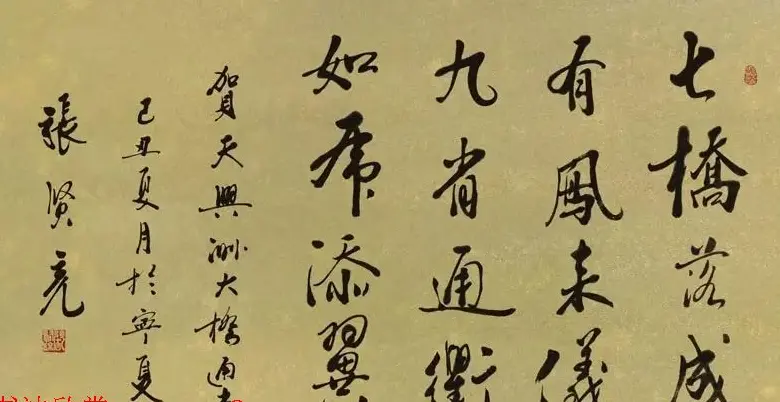 七橋落成
有鳳来儀
九省通衢
如席添翼
賀天興洲大橋通
己丑夏月於寧夏
張賢亮